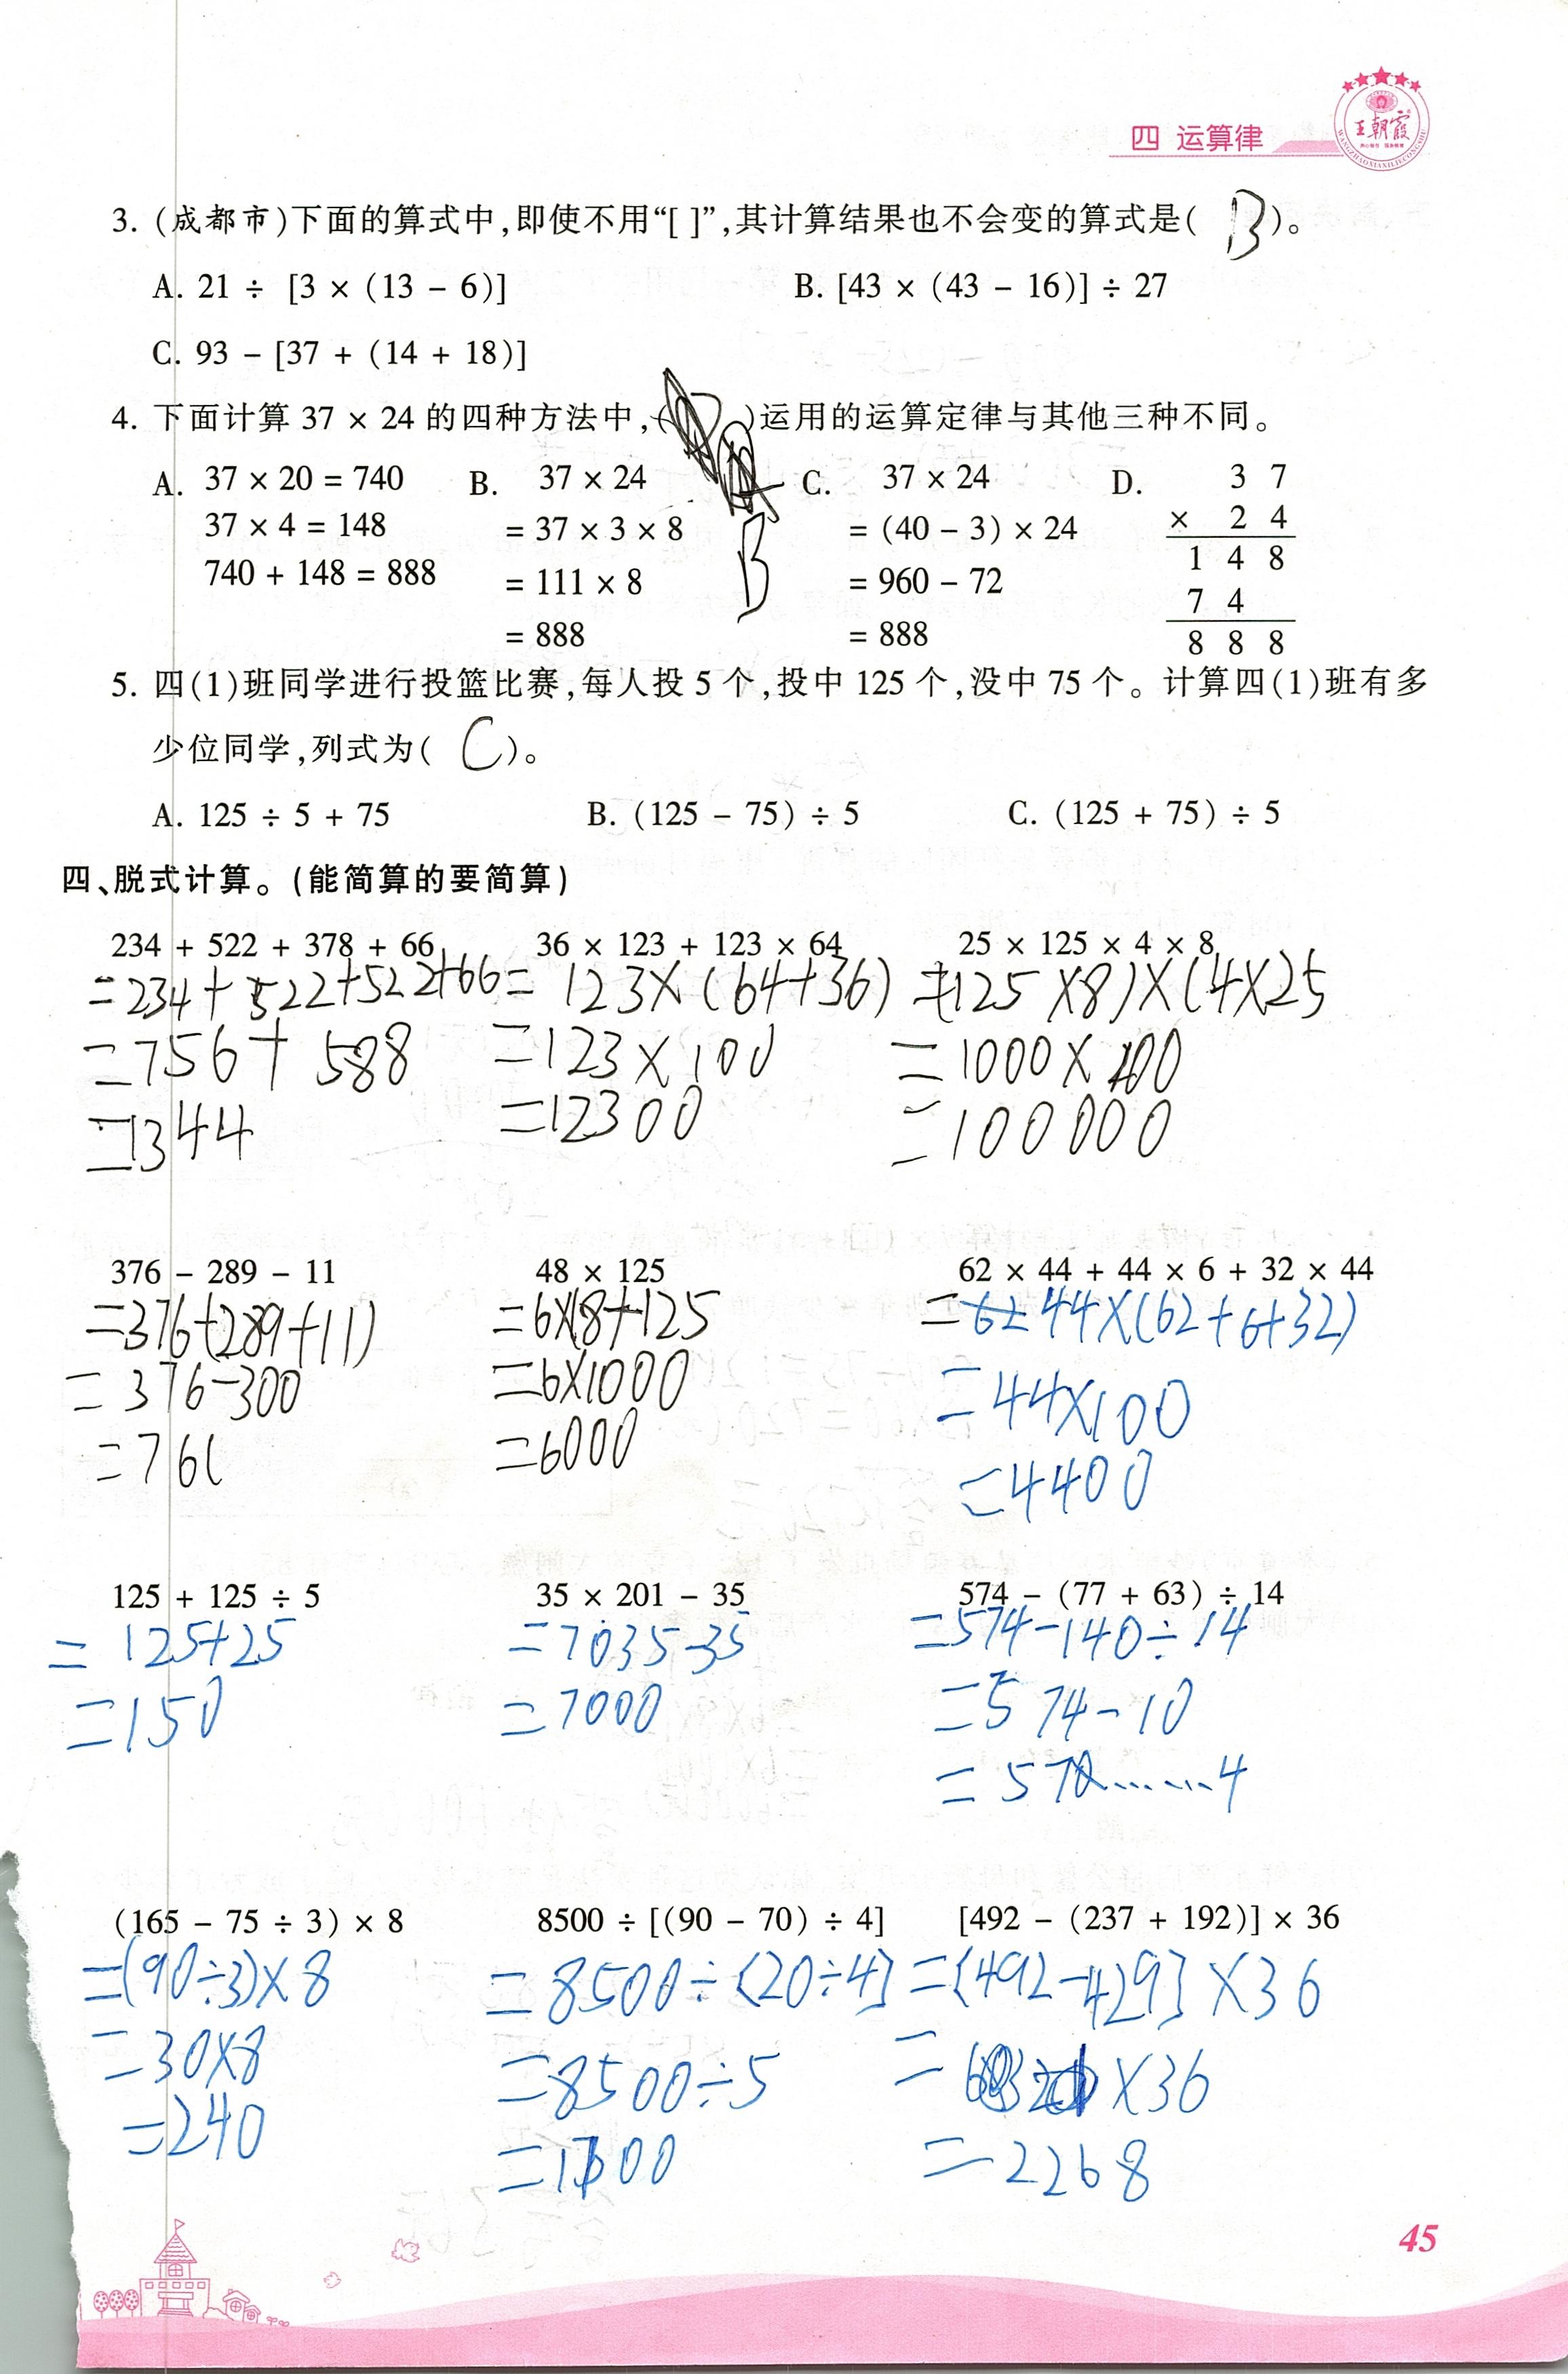 四 运算律
王朝霞
3. (成都市)下面的算式中,即使不用“[ ]”,其计算结果也不会变的算式是( B )。
A. 21 ÷ [3 × (13 - 6)] B. [43 × (43 - 16)] ÷ 27
C. 93 - [37 + (14 + 18)]
4. 下面计算 37 × 24 的四种方法中,( )运用的运算定律与其他三种不同。
B
A. 37 × 20 = 740 B. 37 × 24 C. 37 × 24 D. 3 7
37 × 4 = 148 = 37 × 3 × 8 = (40 - 3) × 24 × 2 4
740 + 148 = 888 = 111 × 8 = 960 - 72 1 4 8
7 4
= 888 = 888 8 8 8
5. 四(1)班同学进行投篮比赛,每人投 5 个,投中 125 个,没中 75 个。计算四(1)班有多
少位同学,列式为( C )。
A. 125 ÷ 5 + 75 B. (125 - 75) ÷ 5 C. (125 + 75) ÷ 5
四、脱式计算。(能简算的要简算)
234 + 522 + 378 + 66 36 × 123 + 123 × 64 25 × 125 × 4 × 8
=234+522+522+66 =123×(64+36) =(125×8)×(4×25
=756+588 =123×100 =1000×100
=1344 =12300 =100000
376 - 289 - 11 48 × 125 62 × 44 + 44 × 6 + 32 × 44
=376-(289+11) =6×(8+125 =44×(62+6+32)
=376-300 =6×1000 =44×100
=76( =6000 =4400
125 + 125 ÷ 5 35 × 201 - 35 574 - (77 + 63) ÷ 14
=125+25 =7035-35 =574-140÷14
=150 =7000 =574-10
=570……4
(165 - 75 ÷ 3) × 8 8500 ÷ [(90 - 70) ÷ 4] [492 - (237 + 192)] × 36
=(90÷3)×8 =8500÷[20÷4] =[492-429]×36
=30×8 =8500÷5 = ×36
=240 =1700 =2268
45